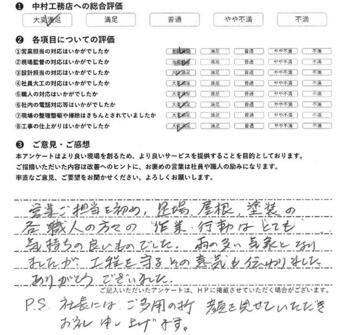 ❶ 中村工務店への総合評価
大変満足 満足 普通 やや不満 不満
❷ 各項目についての評価
①営業担当の対応はいかがでしたか 満足 普通 やや不満 不満
②現場監督の対応はいかがでしたか 満足 普通 やや不満 不満
③設計担当の対応はいかがでしたか 満足 普通 やや不満 不満
④社員大工の対応はいかがでしたか 満足 普通 やや不満 不満
⑤職人の対応はいかがでしたか 満足 普通 やや不満 不満
⑥社内の電話対応等はいかがでしたか 満足 普通 やや不満 不満
⑦現場の整理整頓や掃除はきちんとされていましたか 満足 普通 やや不満 不満
⑧工事の仕上がりはいかがでしたか 満足 普通 やや不満 不満
❸ ご意見・ご感想
本アンケートはより良い現場を創るため、より良いサービスを提供することを目的としております。
ご指摘いただいた内容は改善へのヒントに、お褒めの言葉は社員や職人の励みになります。
率直なご意見、ご要望をお聞かせください。よろしくお願いします。
営業ご担当を初め、足場、屋根、塗装の
各職人の方々の作業・行動はとても
気持ちの良いものでした。雨の多い気象となり
ましたが、工程を守る その意気も伝わりました
ありがとうございました。
ご記入いただいたアンケートは、HPに掲載させていただく場合がございます。
P.S 社長にはご多用の折 顔を見せていただき
お礼申し上げます。